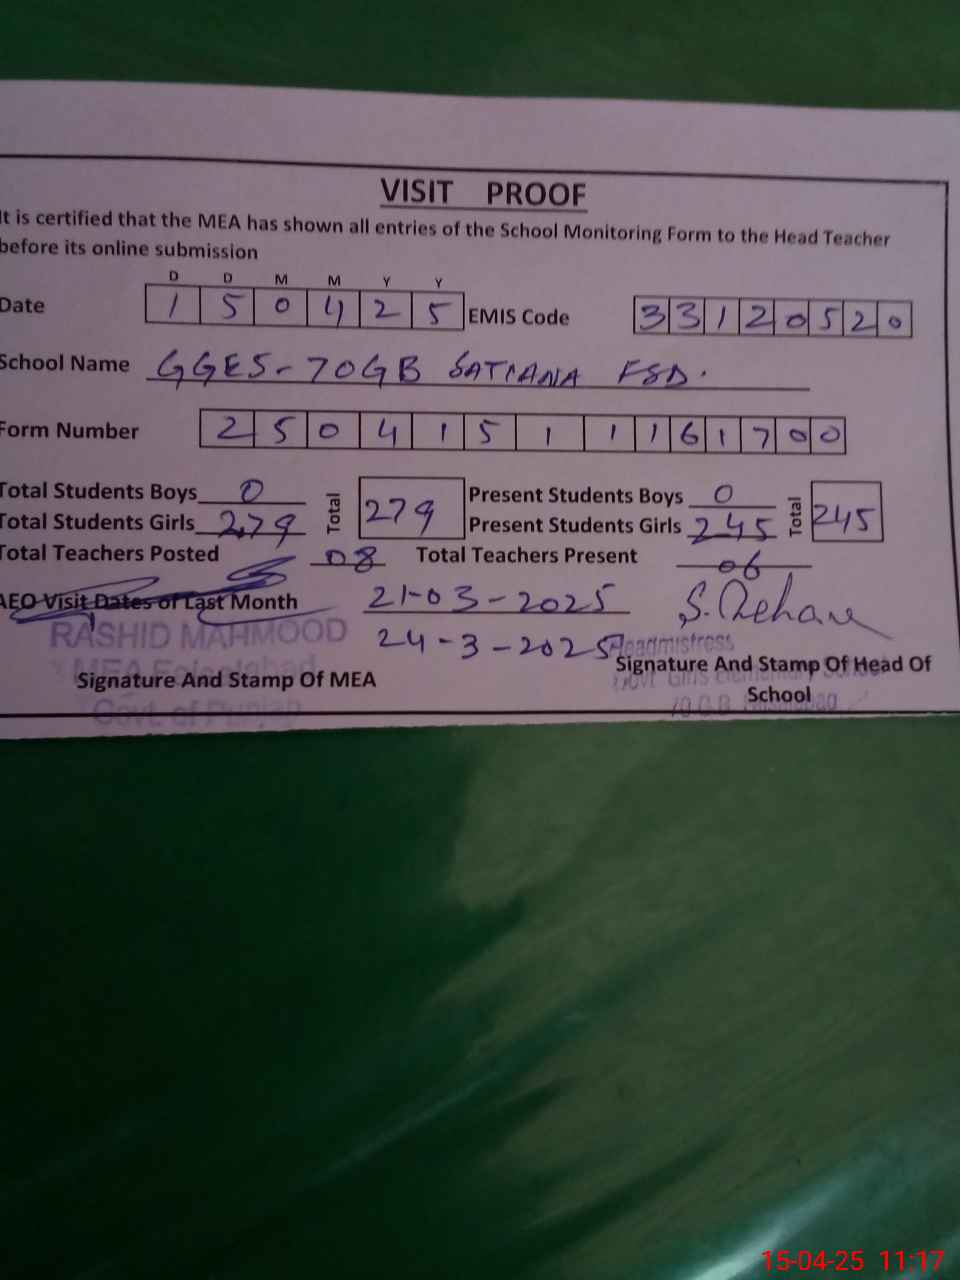 VISIT PROOF
It is certified that the MEA has shown all entries of the School Monitoring Form to the Head Teacher
before its online submission
D D M M Y Y
Date 1 5 0 4 2 5 EMIS Code 3 3 1 2 0 5 2 0
School Name GGES-70GB SATIANA FSD.
Form Number 2 5 0 4 1 5 1 1 1 6 1 7 0 0
Total Students Boys 0 Total 279 Present Students Boys 0 Total 245
Total Students Girls 279 Present Students Girls 245
Total Teachers Posted 08 Total Teachers Present 06
AEO Visit Dates of Last Month 21-03-2025 S. Rehana
RASHID MAHMOOD 24-3-2025 Headmistress
MEA Faisalabad Signature And Stamp Of Head Of
Signature And Stamp Of MEA Govt Girls Elementary School
Govt. of Punjab School
70 G.B. Faisalabad
15-04-25 11:17